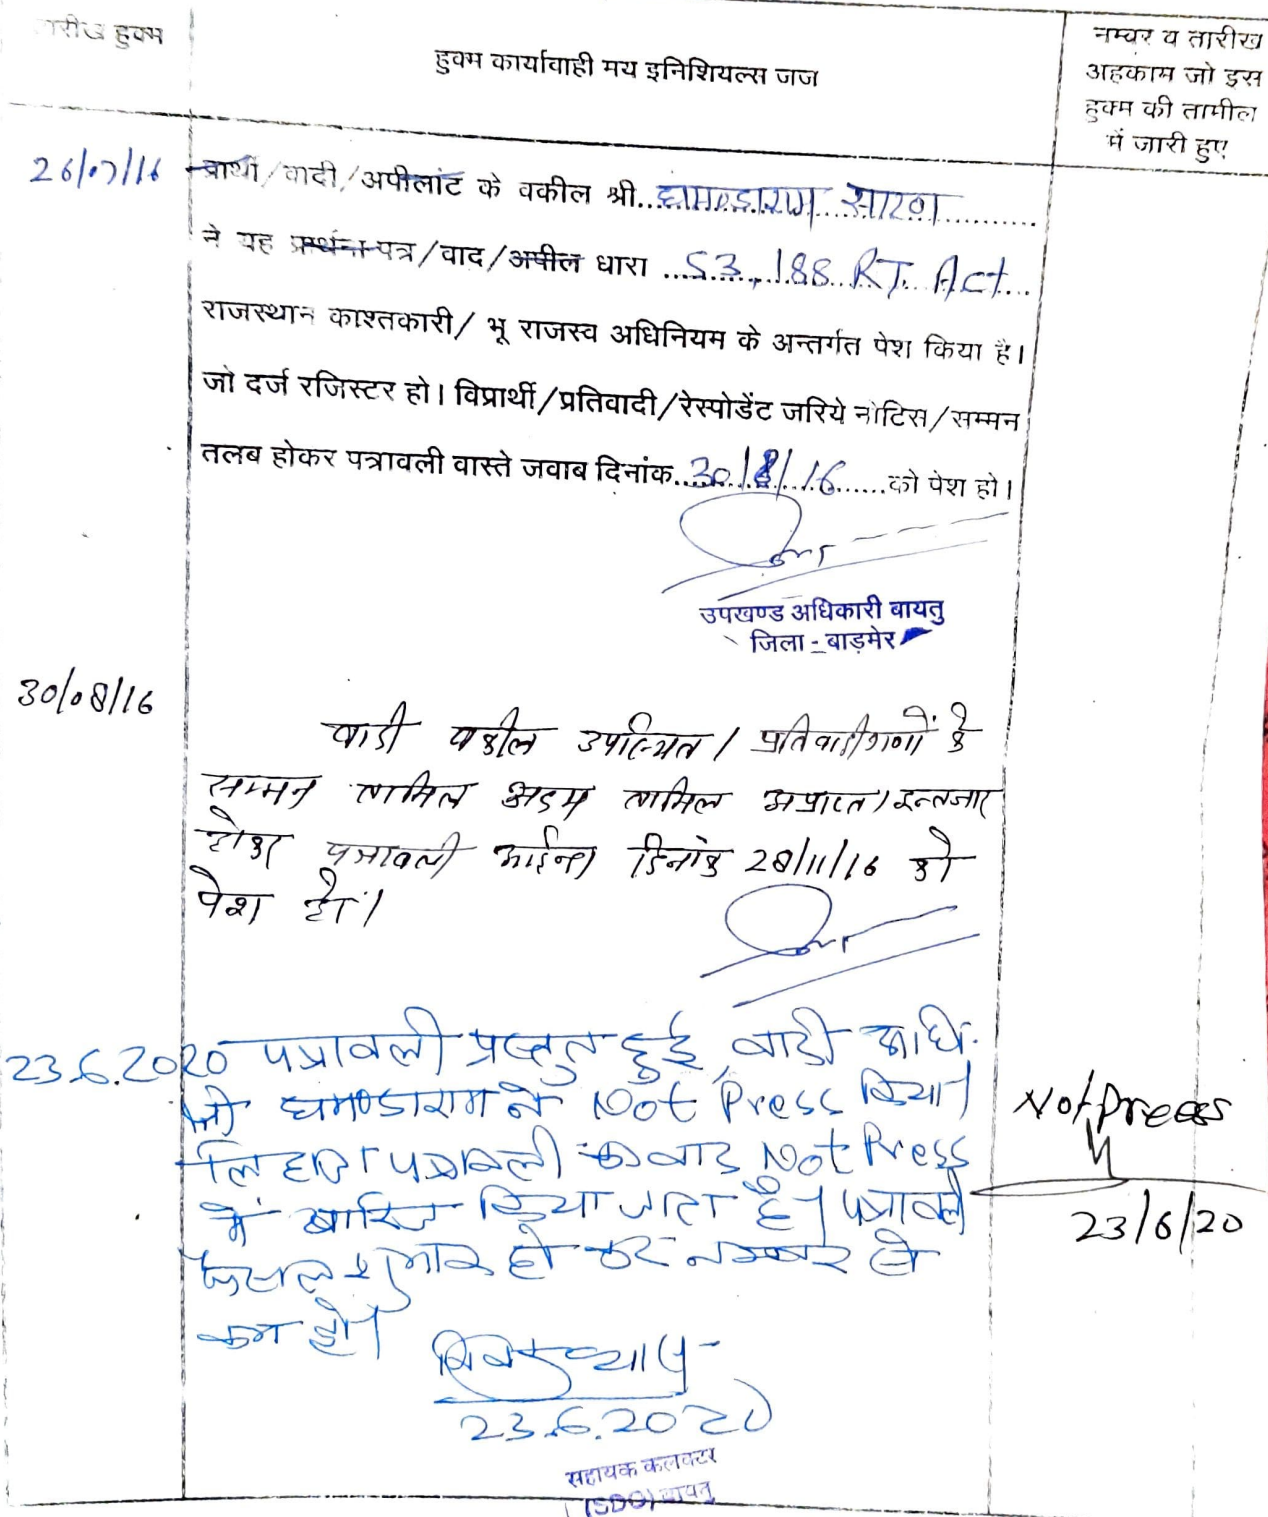 तारीख हुक्म
हुक्म कार्यावाही मय इनिशियल्स जज
नम्बर व तारीख
अहकाम जो इस
हुक्म की तामील
में जारी हुए
26/07/16
प्रार्थी/वादी/अपीलांट के वकील श्री...घमण्डाराम सारण............
ने यह प्रार्थना पत्र/वाद/अपील धारा ...53,188 RT Act...
राजस्थान काश्तकारी/ भू राजस्व अधिनियम के अन्तर्गत पेश किया है।
जो दर्ज रजिस्टर हो। विप्रार्थी/प्रतिवादी/रेस्पोडेंट जरिये नोटिस/सम्मन
तलब होकर पत्रावली वास्ते जवाब दिनांक..30/8/16......को पेश हो।
उपखण्ड अधिकारी बायतु
जिला - बाड़मेर
30/08/16
वादी वकील उपस्थित। प्रतिवादीगणों के
सम्मन तामिल अदम तामिल अप्राप्त। इन्तजार
होकर पत्रावली आईन्दा दिनांक 28/11/16 को
पेश हो।
23.6.2020 पत्रावली प्रस्तुत हुई, वादी अधि.
श्री घमण्डाराम ने Not Press किया।
लिहाजा पत्रावली का वाद Not Press
में खारिज किया जाता है। पत्रावली
फैसल शुमार हो कर नम्बर से
कम हो।
23.6.2020
सहायक कलक्टर
(SDO) बायतु
Not press
23/6/20